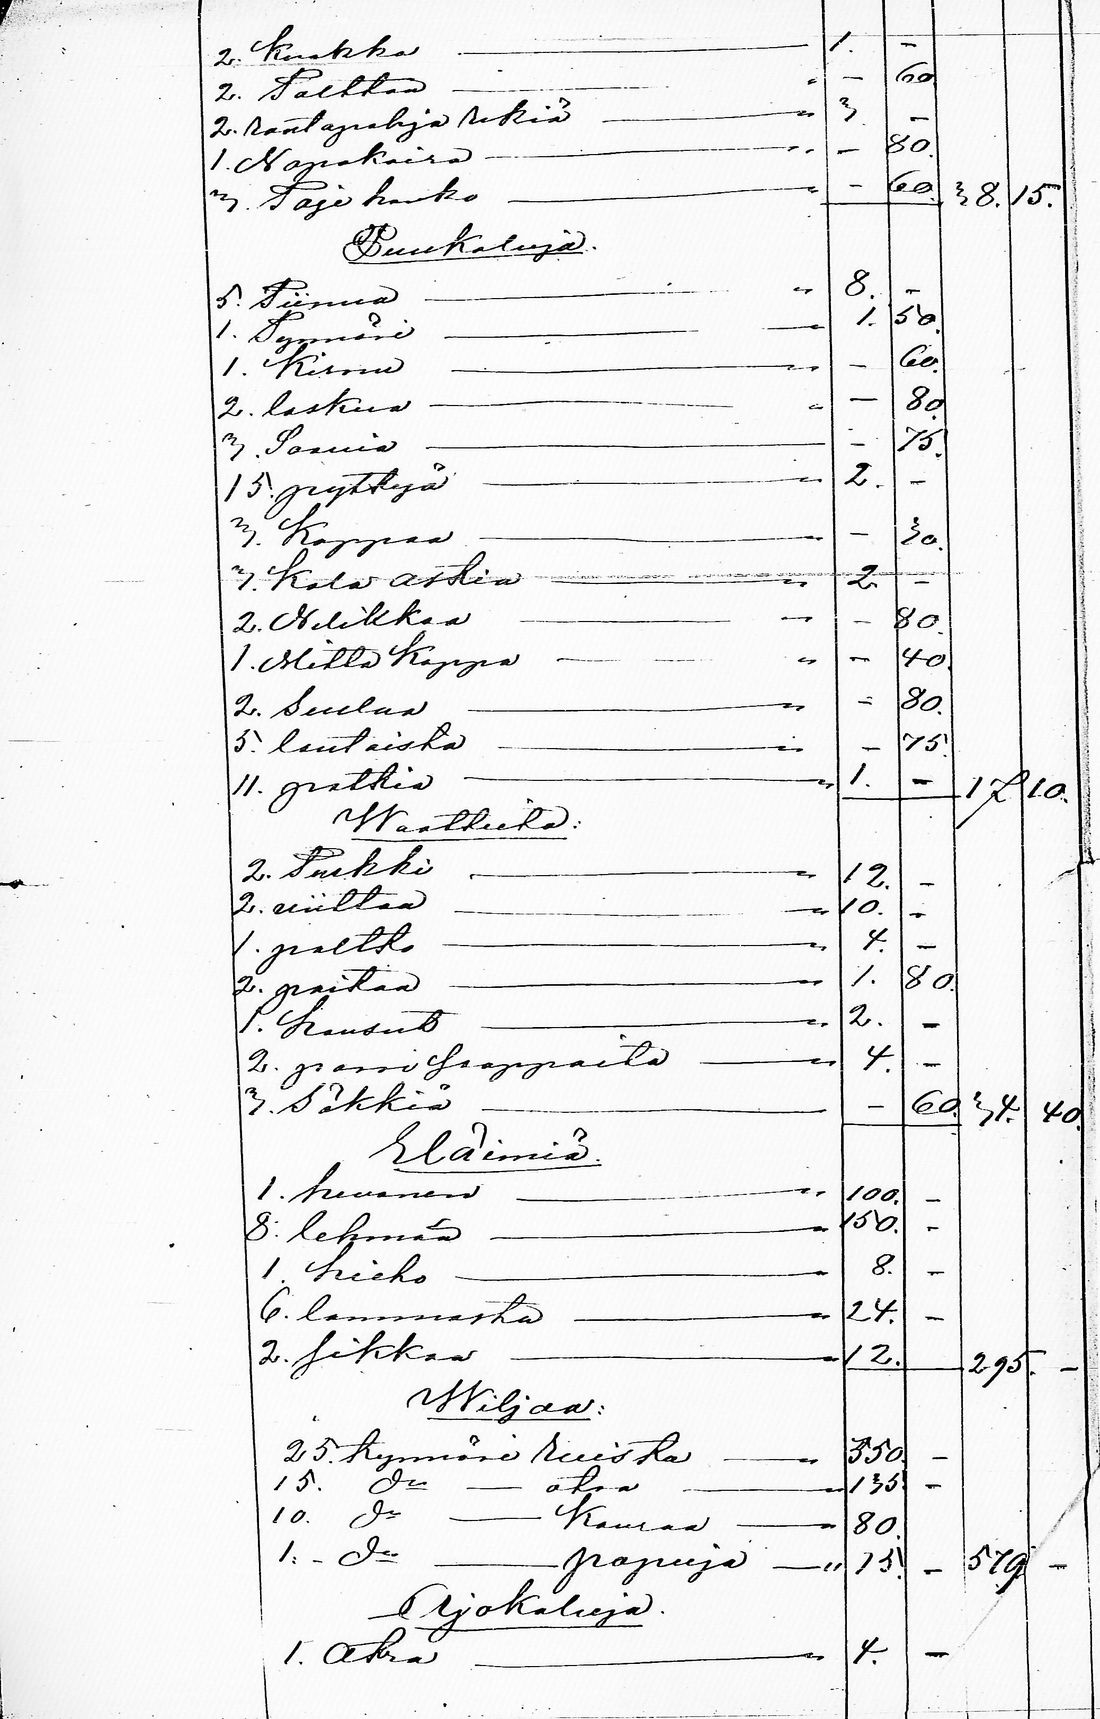 2. Kuokka — 1. -
2. Talttaa — " - 60
2. rautapohja rekiä — " 3 -
1. Napakaira — " - 80.
3. Paje hanko — " - 60. 38. 15.
Puukaluja.
5. Tiinua — " 8. -
1. Tynnöri — " 1. 50.
1. Kirnu — " - 60.
2. laskua — " - 80
3. Saavia — - 75.
15. pyttyjä — " 2. -
3. Koppaa — " - 30.
3. Kala astia — " 2 -
2. Nelikkaa — " - 80.
1. Mitta Kappa — " - 40.
2. Seulaa — " - 80.
5. lautaista — " - 75
11. patkia — " 1. - 17 10.
Waatteita:
2. Turkki — " 12. -
2. viittaa — " 10. -
1. paltto — " 4. -
2. paitaa — " 1. 80.
1. housut — " 2. -
2. pari saappaita — " 4. -
3. Säkkiä — - 60. 34. 40.
Eläimiä.
1. hevonen — " 100. -
8. lehmää — " 150. -
1. hieho — " 8. -
6. lammasta — " 24. -
2. sikkaa — " 12. 295. -
Wiljaa:
25. tynnöri ruista — " 350. -
15. do — ohra — " 135 -
10. do — Kauraa — " 80.
1. - do — papuja — " 15. - 579 -
Ajokaluja.
1. Atra — " 4. -